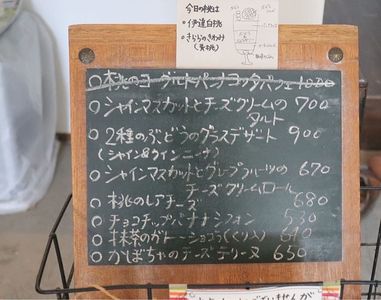 今日の桃は
• 伊達白桃
• きららのきわみ
(黄桃)
○ 桃のヨーグルトパンナコッタパフェ 1000
○ シャインマスカットとチーズクリームの 700
タルト
○ 2種のぶどうのグラスデザート 900
(シャイン&クイーンニーナ)
○ シャインマスカットとグレープフルーツの 670
チーズクリームロール
○ 桃のレアチーズ 680
○ チョコチップバナナシフォン 530
○ 抹茶のガトーショコラ(くり入) 610
○ かぼちゃのチーズテリーヌ 630